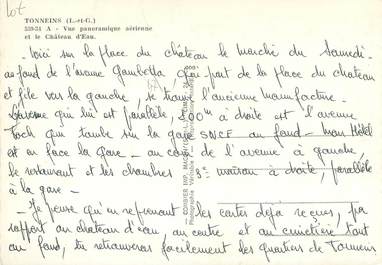 lot
TONNEINS (L.-et-G.)
339-51 A - Vue panoramique aérienne
et le Château d'Eau.
- Voici sur la place du château le marché du Samedi -
au fond de l'avenue Gambetta, qui part de la place du chateau
et file vers la gauche, se trouve l'ancienne manufacture.
L'avenue qui lui est parallèle, 500m à droite est l'avenue
Foch qui tombe sur la gare SNCF au fond - mon Hôtel
est en face la gare - au coin de l'avenue à gauche,
le restaurant et les chambres 3e maison à droite, parallèle
à la gare -
- Je pense qu'en reprenant les cartes déjà reçues, par
rapport au chateau d'eau, au centre et au cimetière tout
au fond, tu retrouveras facilement les quartiers de Tonneins
COMBIER IMP. MACON